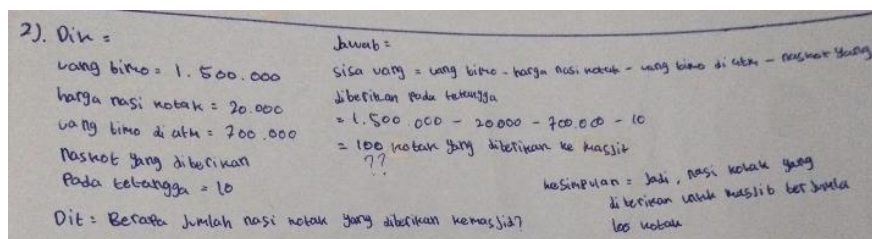 2). Dik =
uang bimo = 1. 500.000
harga nasi kotak = 20.000
uang bimo di atm = 700.000
naskot yang diberikan
Pada tetangga = 10
Dit : Berapa Jumlah nasi kotak yang diberikan kemasjid?
Jawab =
sisa uang = uang bimo - harga nasi kotak - uang bimo di atm - naskot yang
diberikan pada tetangga
= 1.500.000 - 20.000 - 700.000 - 10
= 100 kotak yang diberikan ke masjit
??
kesimpulan = Jadi, nasi kotak yang
diberikan untuk masjib berjumla
100 kotak